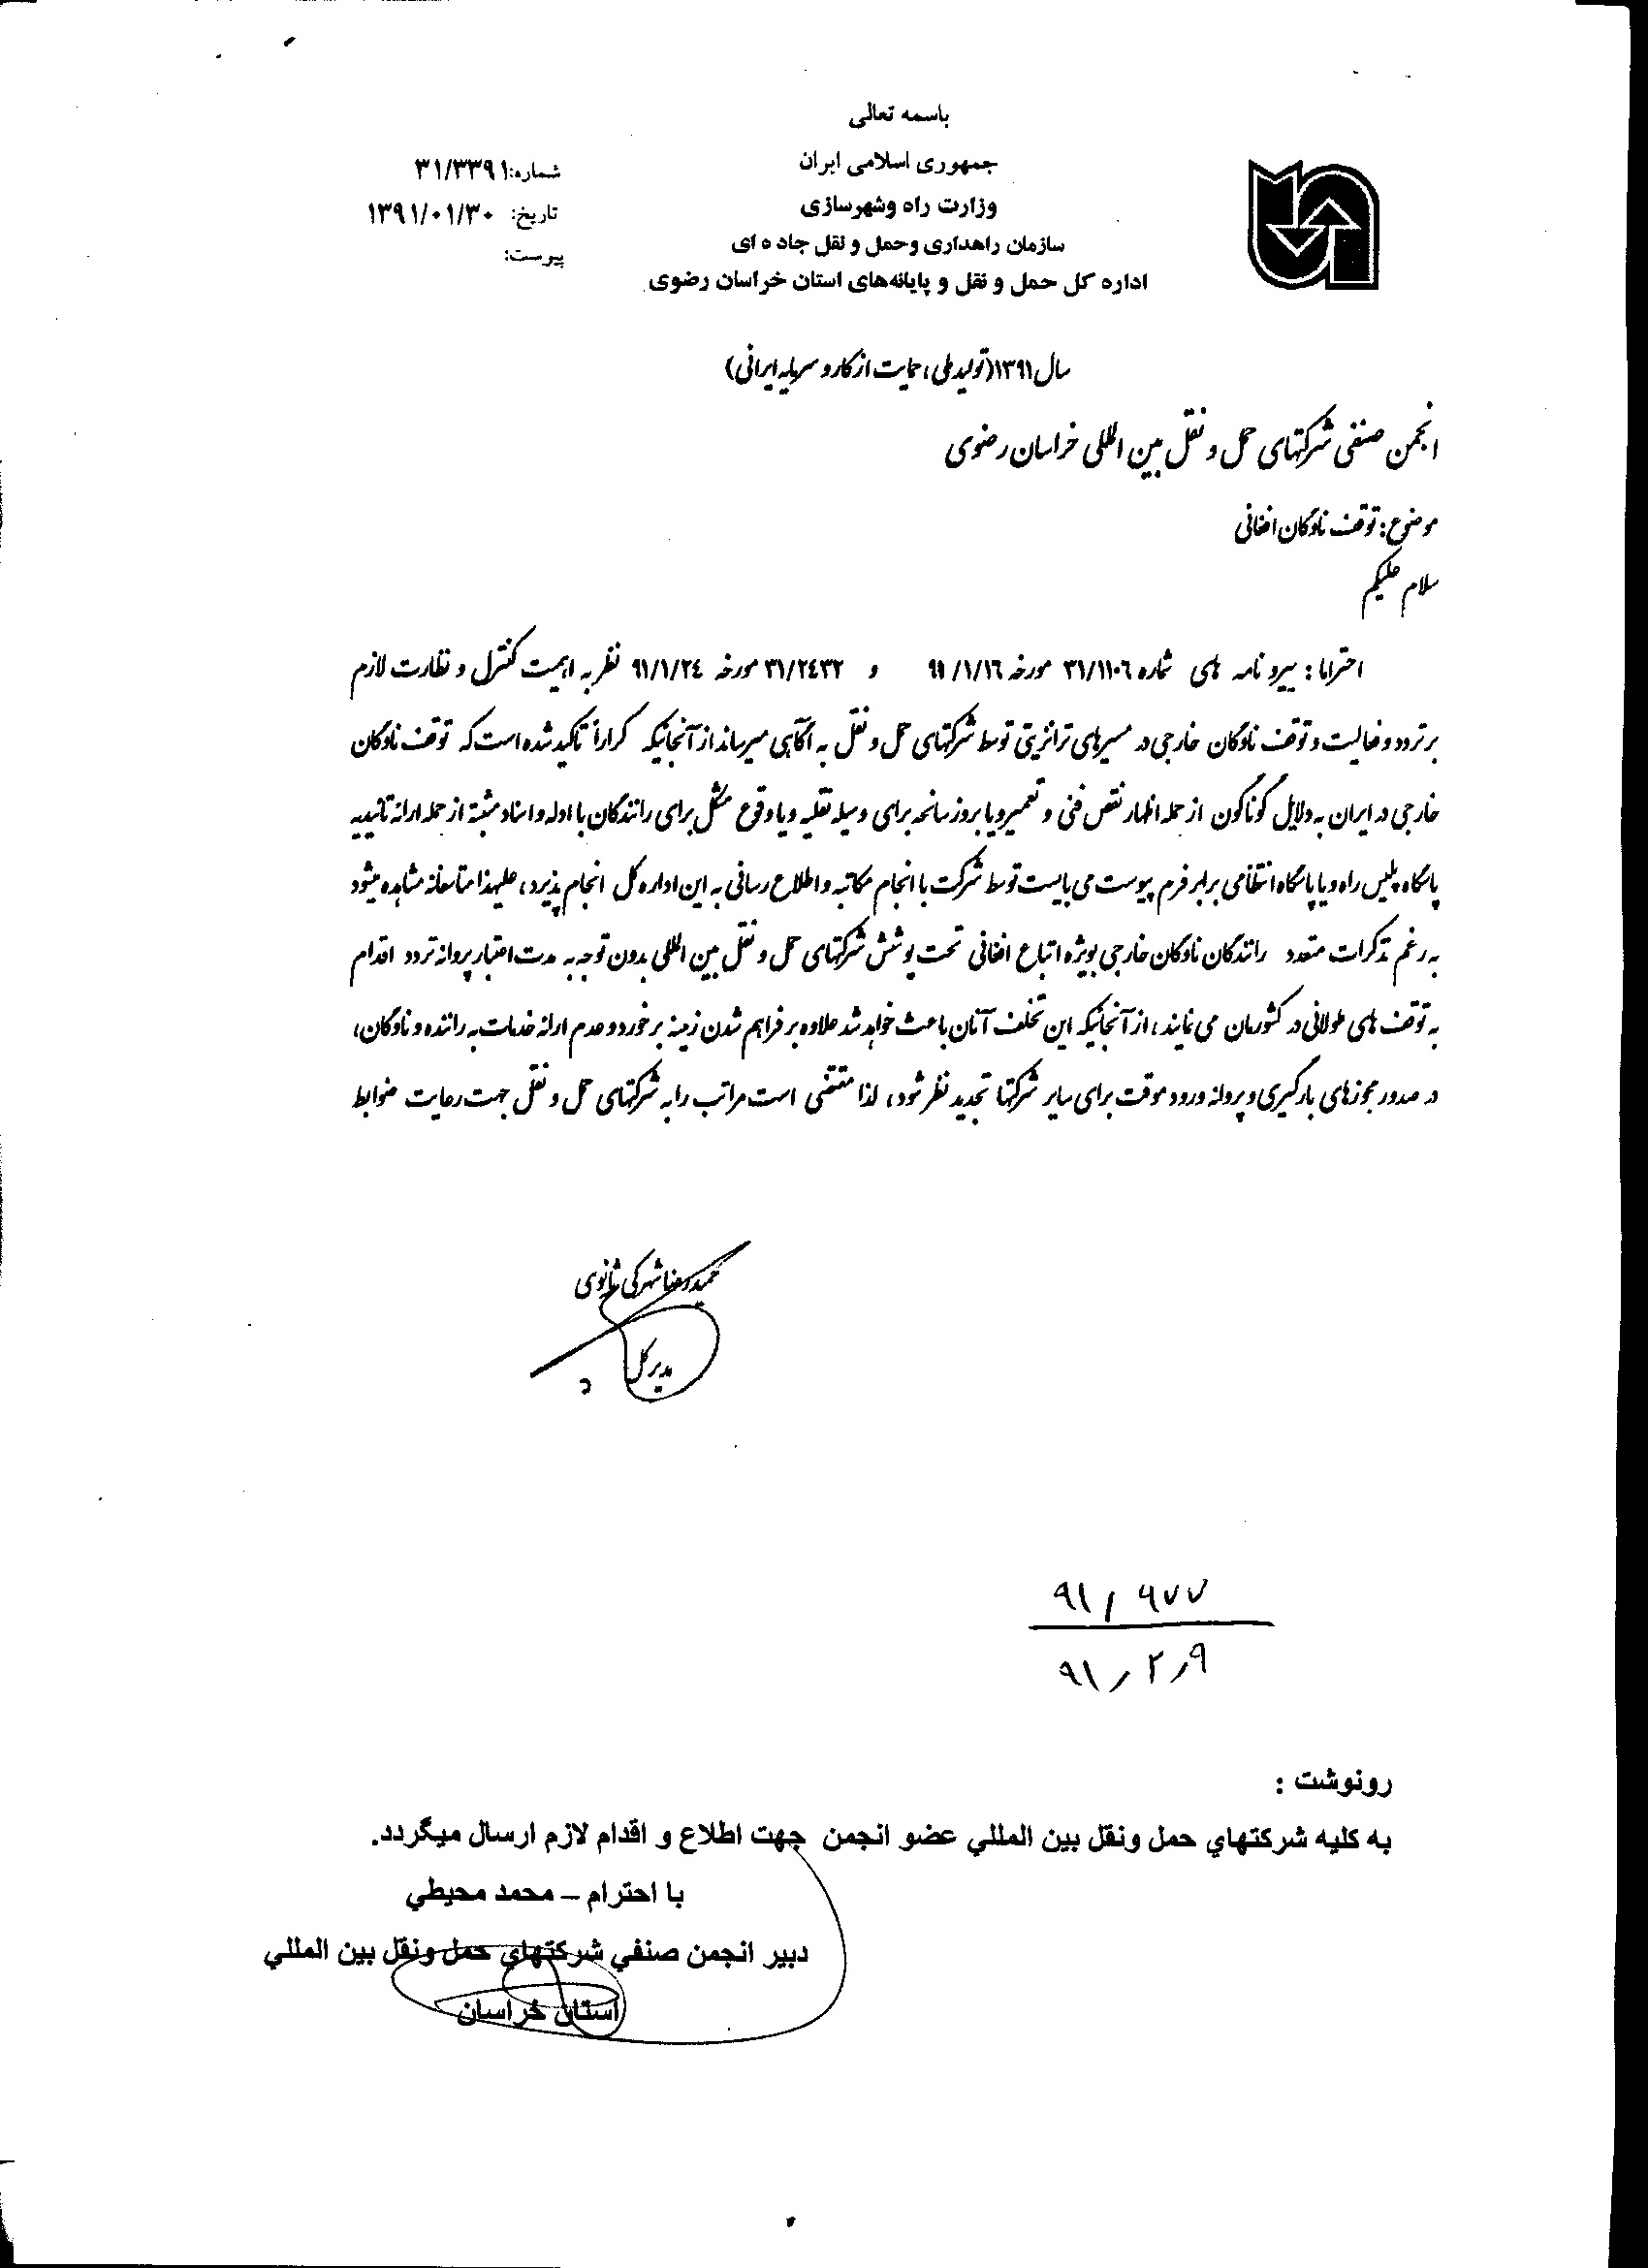 باسمه تعالی
جمهوری اسلامی ایران
وزارت راه وشهرسازی
سازمان راهداری وحمل و نقل جاده ای
اداره کل حمل و نقل و پایانه‌های استان خراسان رضوی
شماره:۳۱/۳۳۹۱
تاریخ: ۱۳۹۱/۰۱/۳۰
پیوست:
سال ۱۳۹۱(تولید ملی، حمایت از کار و سرمایه ایرانی)
انجمن صنفی شرکتهای حمل و نقل بین المللی خراسان رضوی
موضوع: توقف ناوگان افغانی
سلام علیکم
احتراما: پیرو نامه های شماره ۳۱/۱۱۰۶ مورخه ۹۱/۱/۱۶ و ۳۱/۲۴۳۲ مورخه ۹۱/۱/۲۴ نظر به اهمیت کنترل و نظارت لازم
بر تردد و فعالیت و توقف ناوگان خارجی در مسیرهای ترانزیتی توسط شرکتهای حمل و نقل به آگاهی میرساند از آنجائیکه کراراً تاکید شده است که توقف ناوگان
خارجی در ایران به دلایل گوناگون از جمله اظهار نقص فنی و تعمیر و یا بروز سانحه برای وسیله نقلیه و یا وقوع مشکل برای رانندگان با ادله و اسناد مثبته از جمله ارائه تائیدیه
پاسگاه پلیس راه و یا پاسگاه انتظامی برابر فرم پیوست می بایست توسط شرکت با انجام مکاتبه و اطلاع رسانی به این اداره کل انجام پذیرد، علیهذا متاسفانه مشاهده میشود
به رغم تذکرات متعدد رانندگان ناوگان خارجی بویژه اتباع افغانی تحت پوشش شرکتهای حمل و نقل بین المللی بدون توجه به مدت اعتبار پروانه تردد اقدام
به توقف های طولانی در کشورمان می نمایند، از آنجائیکه این تخلف آنان باعث خواهد شد علاوه بر فراهم شدن زمینه برخورد و عدم ارائه خدمات به راننده و ناوگان،
در صدور مجوزهای بارگیری و پروانه ورود موقت برای سایر شرکتها تجدید نظر شود، لذا مقتضی است مراتب را به شرکتهای حمل و نقل جهت رعایت ضوابط
حمیدرضا شهرکی ثانوی
مدیر کل
۹۱/۶۷۷
۹۱/۲/۹
رونوشت :
به کلیه شرکتهاي حمل ونقل بین المللي عضو انجمن جهت اطلاع و اقدام لازم ارسال میگردد.
با احترام – محمد محیطي
دبیر انجمن صنفي شرکتهاي حمل ونقل بین المللي
استان خراسان